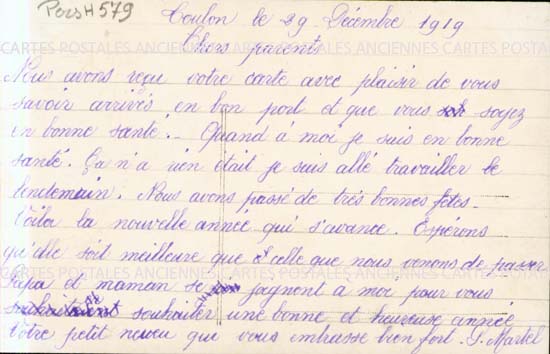 Pers H 579
Toulon le 29 Décembre 1919
Chers parents
Nous avons reçu votre carte avec plaisir de vous
savoir arrivés en bon port et que vous soyez
en bonne santé. Quand a moi je suis en bonne
santé. Ça n'a rien était je suis allé travailler le
lendemain. Nous avons passé de très bonnes fêtes.
Voila la nouvelle année qui s'avance. Espérons
qu'elle soit meilleure que celle que nous venons de passer
Papa et maman se joignent a moi pour vous
souhaiter une bonne et heureuse année
Votre petit neveu qui vous embrasse bien fort. J. Martel
CARTES POSTALES ANCIENNES CARTES POSTALES ANCIENNES CARTES POSTALES